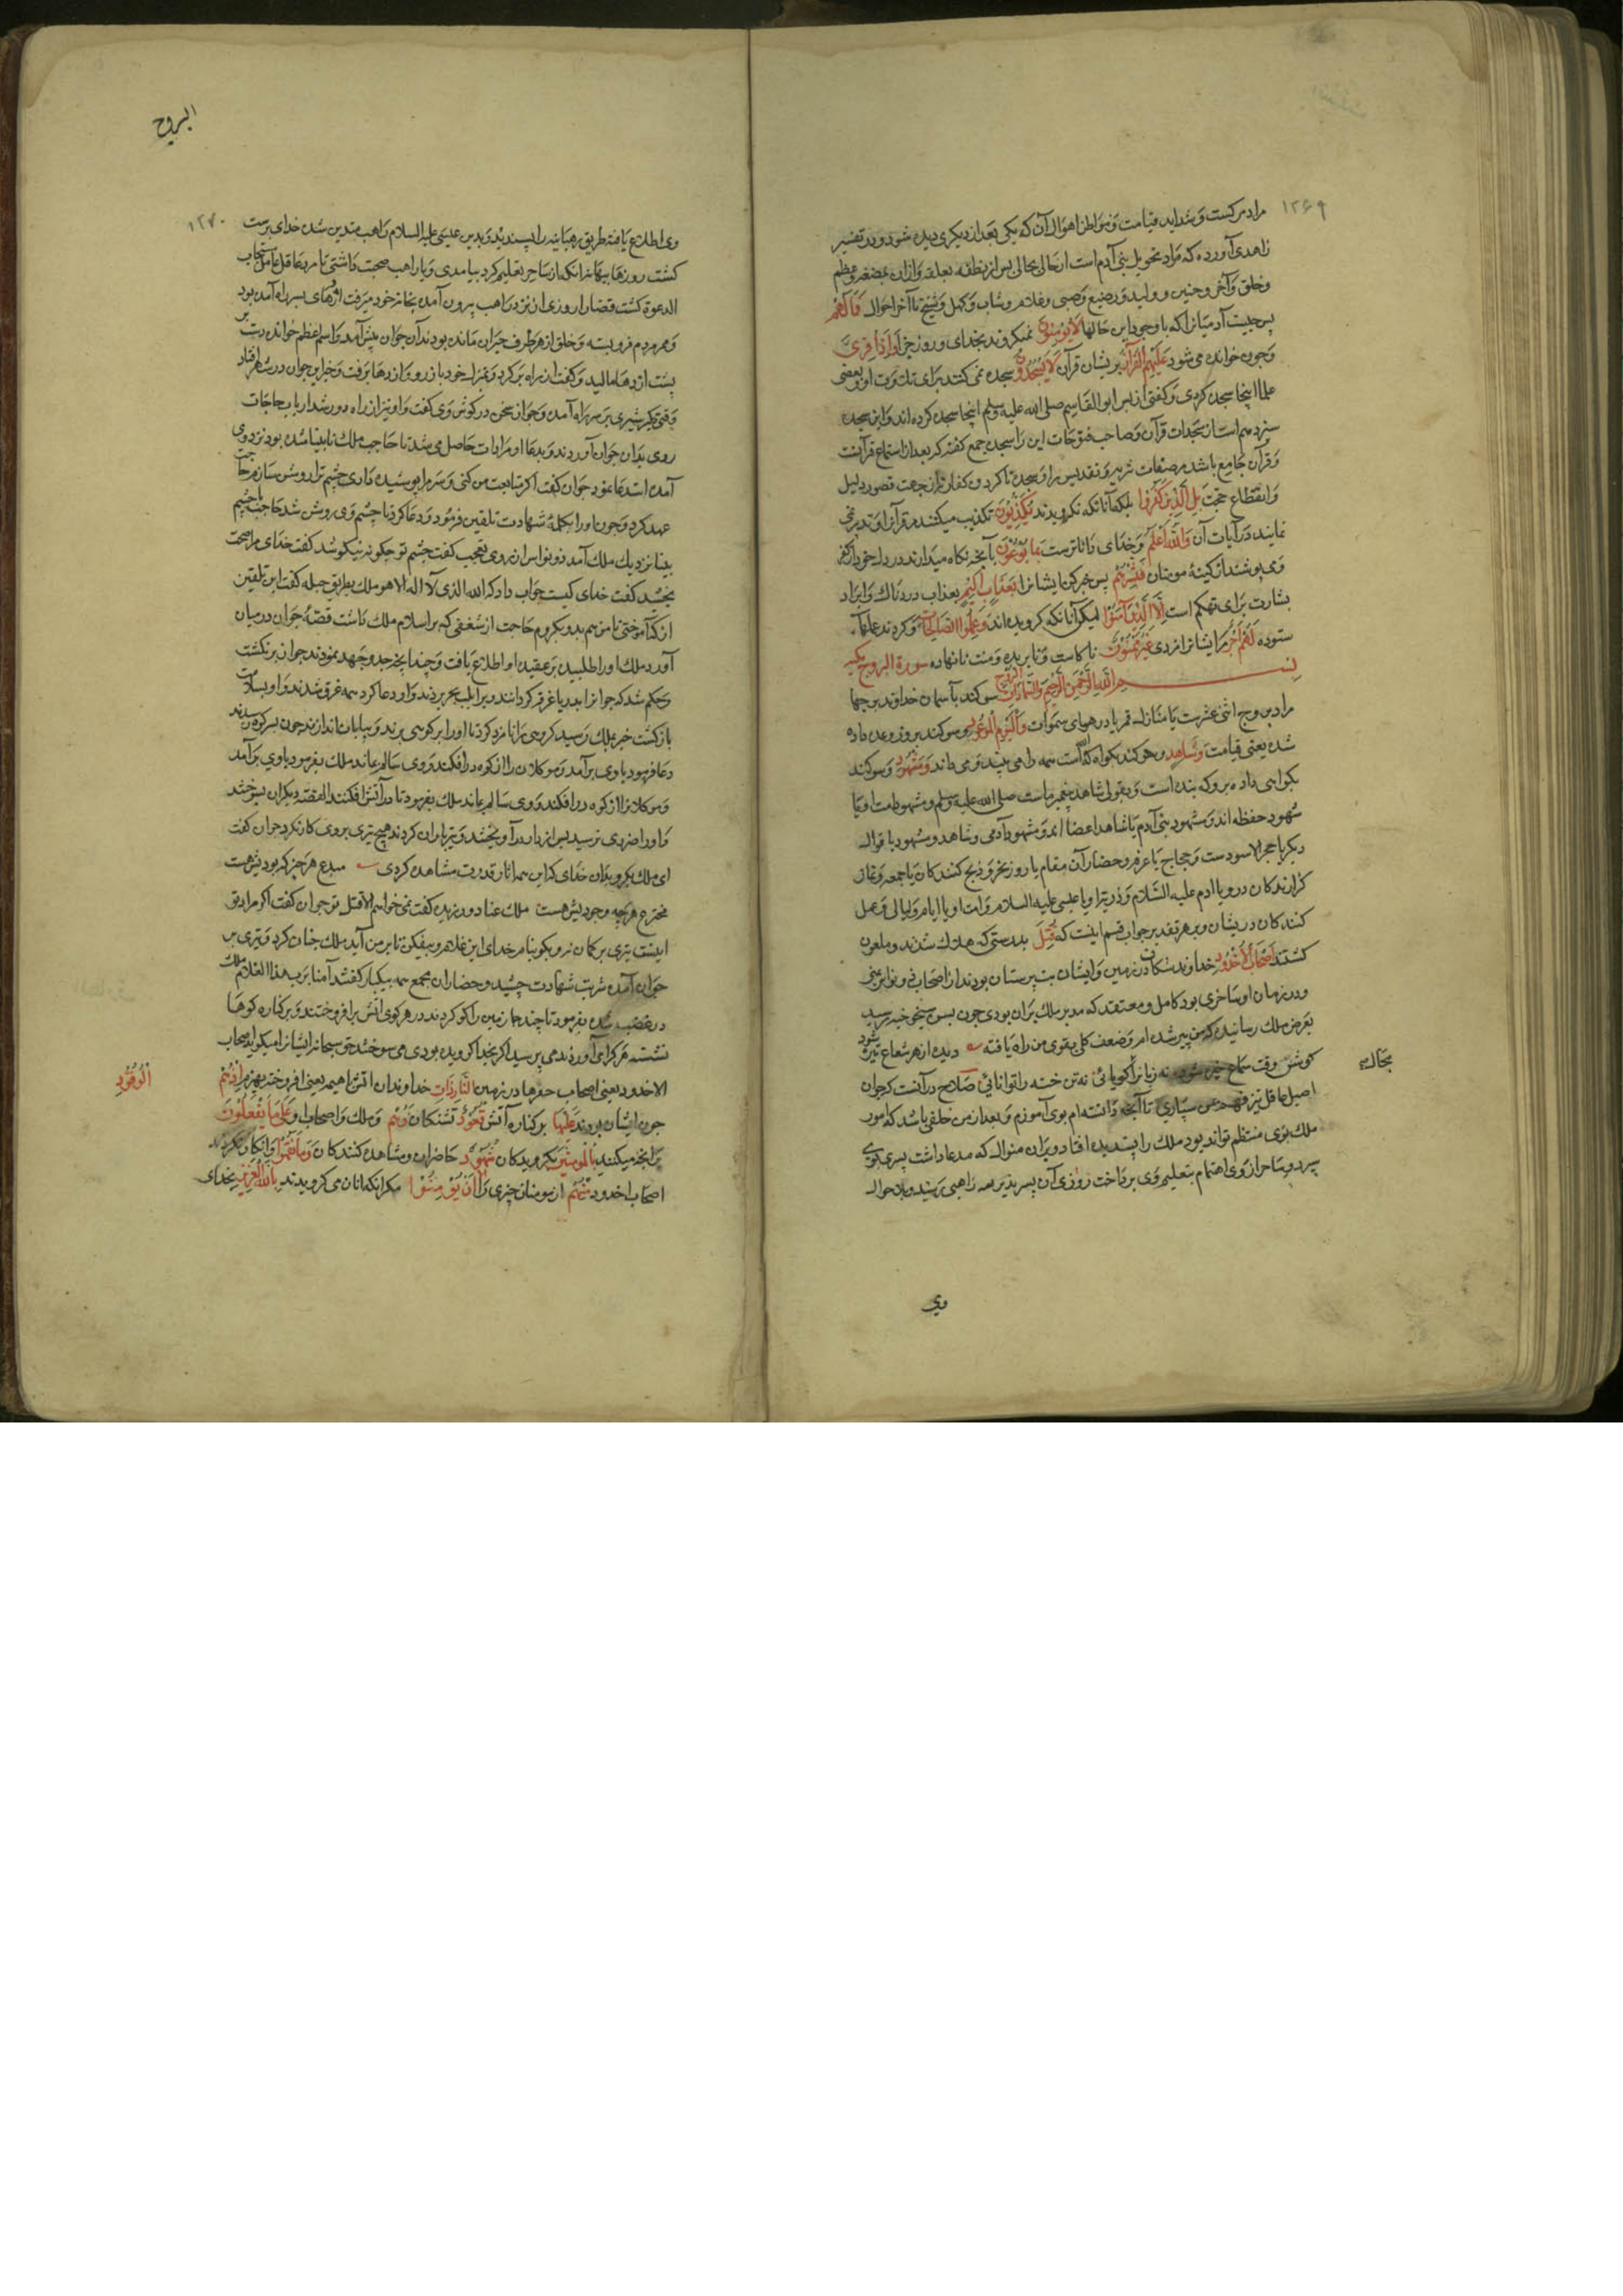 ۱۲۶۹
مراد مرکست و شداید قیامت و مواطن اهوال آن که یکی بعد از دیگری دیده شود و در تفسیر
زاهدی آورده که مراد تحویل بنی آدم است از حالی بحالی پس از نطفه بعلقه و ازان بمضغه و عظم
و خلق و آخر و جنین و ولید و رضیع و صبی و غلام و شاب و کهل و شیخ تا آخر احوال فَمَا لَهُمْ
پس چیست آدمیانرا که با وجود این حالها لَا يُؤْمِنُونَ نمیکروند بخدای و روز جزا وَاِذَا قُرِئَ
و چون خوانده می شود عَلَيْهِمُ الْقُرْآنُ بریشان قرآن لَا يَسْجُدُونَ سجده نمی کنند برای تلاوت او و بعضی
علما اینجا سجده کردی و کفتی از پس ابو القاسم صلی الله علیه وسلم اینجا سجده کرده اند و این سجده
سیزدهم است از سجدات قرآن و صاحب فتوحات این را سجده جمع کفته که بعد از استماع قرآنست
و قرآن جامع باشد مر صفات تنزیه و تقدیس را و سجده ناکردن کفار نه از جهت قصور دلیل
و انقطاع حجت بَلِ الَّذِينَ كَفَرُوا بلکه آنانکه نکرویدند يُكَذِّبُونَ تکذیب میکنند مر قرآن را و تدبر نمی
نمایند در آیات آن وَاللَّهُ اَعْلَمُ و خدای داناترست بِمَا يُوعُونَ بآنچه نکاه میدارند در دل خود از کفر
و می پوشند از کینهٔ مومنان فَبَشِّرْهُمْ پس خبر کن ایشانرا بِعَذَابٍ اَلِيمٍ بعذاب دردناک و ایراد
بشارت برای تهکم است اِلَّا الَّذِينَ آمَنُوا لیکن آنانکه کرویده اند وَعَمِلُوا الصَّالِحَاتِ و کردند عملهاء
ستوده لَهُمْ اَجْرٌ مر ایشانرا مزدی غَيْرُ مَمْنُونٍ نا کاست و نا بریده و منت نا نهاده سورة البروج مکیه
بسم الله الرحمن الرحیم وَالسَّمَاءِ ذَاتِ الْبُرُوجِ سوکند بآسمان خداوند برجها
مراد بروج اثنی عشرست یا منازل قمر یا درهای سموات وَالْيَوْمِ الْمَوْعُودِ و سوکند بروز وعده داده
شده یعنی قیامت وَشَاهِدٍ و سوکند بکواه که الله است همه را می بیند و می داند وَمَشْهُودٍ و سوکند
بکواهی داده برو که بنده است و بقولی شاهد پیغمبر ماست صلی الله علیه وسلم و مشهود امت او یا
شهود حفظه اند و مشهود بنی آدم یا شاهد اعضا اند و مشهود آدمی و شاهد و مشهود با قوال
دیکر یا حجر الاسودست و حجاج یا عرفه و حضار آن مقام یا روز نحر و ذبح کنندکان یا جمعه و نماز
کزارندکان درو یا ادم علیه السلام و ذریت او یا عیسی علیه السلام و امت او یا ایام و لیالی و عمل
کنندکان دریشان و بر هر تقدیر جواب قسم اینست که قُتِلَ بدرستی که هلاک شدند و ملعون
کشتند اَصْحَابُ الْاُخْدُودِ خداوند شکافتن زمین و ایشان بت پرستان بودند از اصحاب ذو نواس یمنی
و در زمان او ساحری بود کامل و معتقد که مدبر ملک بران بودی چون بسن شیخوخیه رسید
بعرض ملک رسانید که من پیر شده ام و ضعف کلی بقوی من راه یافته دیده از هر شعاع تیره شود
کوش وقت سماع خیره شود نه زبانرا کویائی نه تن خسته را توانائی صلاح در آنست که جوان بحال
اصیل عاقل تیز فهم بمن سپاری تا آنچه دانسته ام بوی آموزم و بعد از من خلفی باشد که امور
ملک بوی منتظم تواند بود ملک را پسندیده افتاد و بران منوال که مدعا داشت پسری بوی
سپرد و ساحر از روی اهتمام بتعلیم وی برداخت روزی آن پسر بدیر راهبی رسید و بر حوال
وی
البروج
۱۲۷۰
وی اطلاع یافته طریق رهبانیه را پسندید و بدین عیسی علیه السلام راهب متدین شده خدای پرست
کشت روزها ببهانهٔ آنکه از ساحر تعلیم کرد بیامدی و با راهب صحبت داشتی تا مرد عاقل عامل مستجاب
الدعوة کشت قضا را روزی از نزد راهب بیرون آمده بخانهٔ خود میرفت اژدهای بسر راه آمده بود
و ممر مردم فرو بسته و خلق از هر طرف حیران مانده بودند آن جوان پیش آمد و اسم اعظم خوانده دست بر
پشت اژدها مالید و کفت از راه بر کرد و بمنزل خود باز رو و اژدها برفت و خبر این جوان در شهر افتاد
وقتی دیکر شیری بر سر راه آمده و جوان سخن در کوش وی کفت و او نیز از راه دور شد ارباب حاجات
روی بدان جوان آوردند و بدعا او مرادات حاصل می شد تا حاجب ملک نابینا شده بود نزد وی
آمده استدعا نمود جوان کفت اکر متابعت من کنی و سر مرا پوشیده داری چشم ترا روشن سازم حاجب
عهد کرد و چون او را بکلمهٔ شهادت تلقین فرمود و دعا کرد تا چشم وی روشن شد حاجب با چشم
بینا نزدیک ملک آمد ذو نواس از روی تعجب کفت چشم تو چکونه نیکو شد کفت خدای مرا صحت
بخشید کفت خدای کیست جواب داد که الله الذی لا اله الا هو ملک بطریق حیله کفت این تلقین
از که آموختی تا من هم بدو بکروم حاجب از شغفی که بر اسلام ملک داشت قصهٔ جوان در میان
آورد ملک او را طلبید بر عقیدهٔ او اطلاع یافت و چندانچه جد و جهد نمودند جوان بر نکشت
و حکم شد که جوانرا بدریا غرق کردانند و برا بلب بحر بردند و او دعا کرد همه غرق شدند و او بسلامت
باز کشت خبر بملک رسید کروهی را نامزد کرد تا او را بر کوهی برند و بپایان اندازند چون بسر کوه رسیدند
دعا فرمود بادی برآمد و موکلان را از کوه در افکند و وی سالم بماند ملک بفرمود باوی برآمد
و موکلانرا از کوه در افکند و وی سالم بماند ملک بفرمود تا در آتش افکنند القصه دیکران بسوختند
و او را ضرری نرسید پس از دار در آویختند و تیرباران کردند هیچ تیری بروی کار نکرد جوان کفت
ای ملک بکرو بدان خدای که این همه اثار قدرت مشاهده کردی مبدع هر چیز که بودیش هست
مخترع هر چه وجودیش هست ملک عناد ورزیده کفت نمی خواهم الا قتل تو جوان کفت اکر مراد تو
اینست تیری بر کمان نه و بکو بنام خدای این غلام و بیفکن تا بر من آید ملک چنان کرد و تیری بر
جوان آمده شربت شهادت چشید و حضار ان مجمع همه بیکبار کفتند آمنا برب هذا الغلام ملک
در غضب شده بفرمود تا چند جا زمین را کو کردند در هر کوی اتش برافروختند و بر کناره کوها
نشستند هر کرا می آوردند می پرسید اکر بخدا کرویده بودی می سوختند حق سبحانه ایشانرا میکوید اصحاب
الاخدود یعنی اصحاب حفرها در زمین النَّارِ ذَاتِ خداوندان اتش با هیمه یعنی افروخته بهیزم اِذْ هُمْ الْوَقُودِ
چون ایشان بودند عَلَيْهَا بر کناره آتش قُعُودٌ نشستکان وَهُمْ و ملک و اصحاب او عَلَى مَا يَفْعَلُونَ
بر انچه میکنند بِالْمُؤْمِنِينَ بکرویدکان شُهُودٌ حاضران و مشاهده کنندکان وَمَا نَقَمُوا و انکار نکردند
اصحاب اخدود مِنْهُمْ از مومنان چیزی را اِلَّا اَنْ يُؤْمِنُوا مکر انکه انان می کرویدند بِاللَّهِ الْعَزِيزِ بخدای